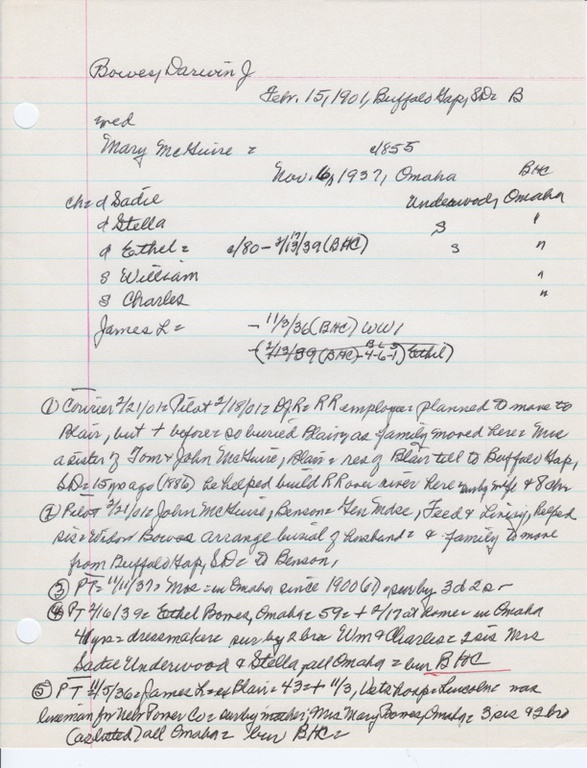 Bowes, Darwin J
Febr. 15, 1901, Buffalo Gap, SD= B
wed
Mary McGuire = c/855
Nov. 6, 1937, Omaha BHC
ch= d Sadie Underwood, Omaha
d Stella S "
d Ethel = c/80 - 2/17/39 (BHC) S "
s William "
s Charles "
James L = - 11/3/36 (BHC) WW1
- (2/13/39 (BHC) - 4-6-1) Ethel)
① Courier 2/21/01= Pilot 2/18/01= DJR= RR employee= planned to move to
Blair, but + before= so buried Blair, as family moved here= Mrs
a sister of Tom & John McGuire, Blair= res of Blair till to Buffalo Gap,
SD= 15 yrs ago (1886) he helped build RR over river here surv by wife & 8 chr
② Pilot 2/21/01= John McGuire, Benson= Gen Mdse, Feed & Livery, helped
sis= Widow Bowes arrange burial of husband= & family to move
from Buffalo Gap, SD= to Benson,
③ PT= 11/11/37= Mrs= in Omaha since 1900 (6)= surv by 3 d 2 s-
④ PT 2/16/39= Ethel Bowes, Omaha= 59= + 2/17 at home= in Omaha
41 yrs= dressmaker= surv by 2 bro Wm & Charles= 2 sis Mrs
Sadie Underwood & Stella, all Omaha= bur BHC
⑤ PT 11/5/36= James L= ex Blair= 43= + 11/3, Vets hosp= Lincoln= was
lineman for Nebr Power Co= surv by mother, Mrs Mary Bowes, Omaha= 3 sis & 2 bro
(as listed) all Omaha= bur BHC=